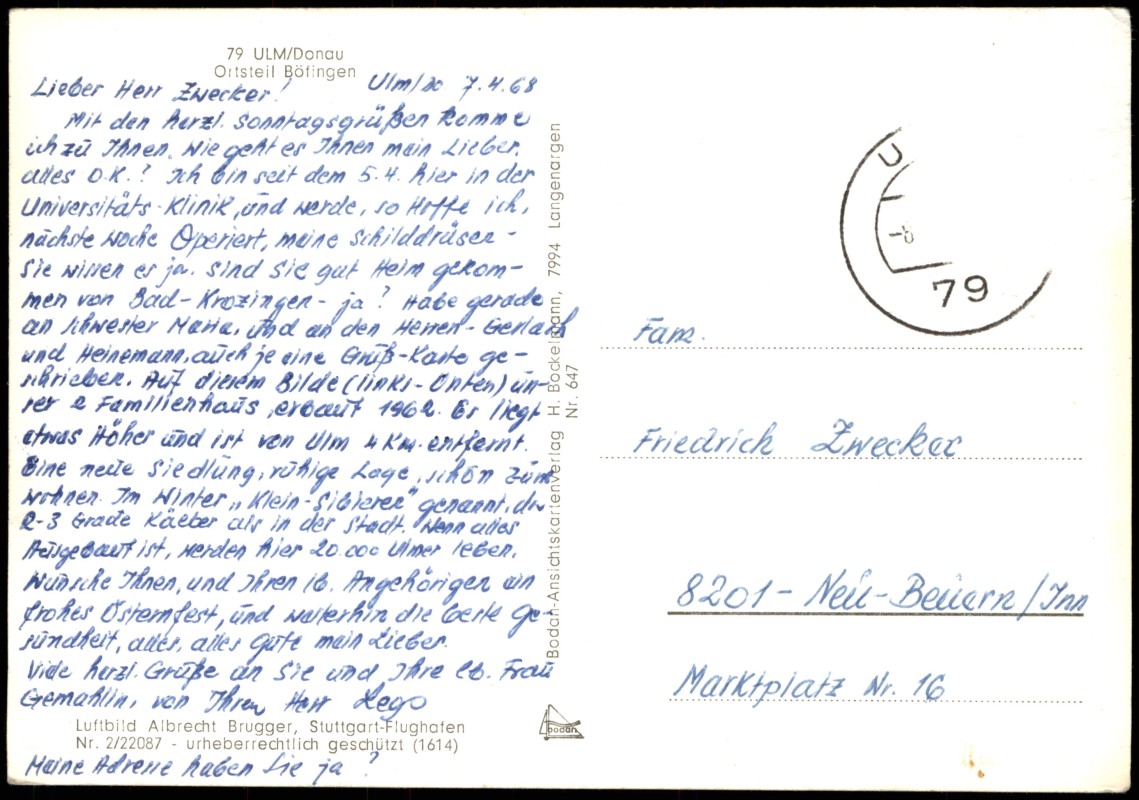 79 ULM/Donau
Ortsteil Böfingen
Lieber Herr Zwecker! Ulm/Do 7.4.68
Mit den herzl. Sonntagsgrüßen komme
ich zu Ihnen. Wie geht es Ihnen mein Lieber.
alles O.K.? Ich bin seit dem 5.4. hier in der
Universitäts-Klinik, und werde, so Hoffe ich,
nächste Woche Operiert, meine Schilddrüsen-
Sie wissen es ja. Sind Sie gut Heim gekom-
men von Bad-Krozingen- ja? Habe gerade
an Schwester Maria, und an den Herren- Gerlach
und Heinemann, auch je eine Gruß-Karte ge-
schrieben. Auf diesem Bilde (links-Unten) un-
ser 2 Familienhaus, erbaut 1962. Es liegt
etwas Höher und ist von Ulm 4 Km. entfernt.
Eine neue Siedlung, ruhige Lage, schön zum
wohnen. Im Winter „Klein-Sibieren" genannt, da
2-3 Grade Kälter als in der Stadt. Wenn alles
Ausgebaut ist, werden hier 20.000 Ulmer leben.
Wünsche Ihnen, und Ihren lb. Angehörigen ein
frohes Osternfest, und weiterhin die beste Ge-
sundheit, alles, alles Gute mein Lieber.
Viele herzl. Grüße an Sie und Ihre lb. Frau
Gemahlin, von Ihrem Herr Lego
Luftbild Albrecht Brugger, Stuttgart-Flughafen
Nr. 2/22087 - urheberrechtlich geschützt (1614)
Meine Adresse haben Sie ja?
Bodan-Ansichtskartenverlag H. Bockelmann, 7994 Langenargen
Nr. 647
bodan
79
Fam.
Friedrich Zwecker
8201- Neu-Beuern/Inn
Marktplatz Nr. 16